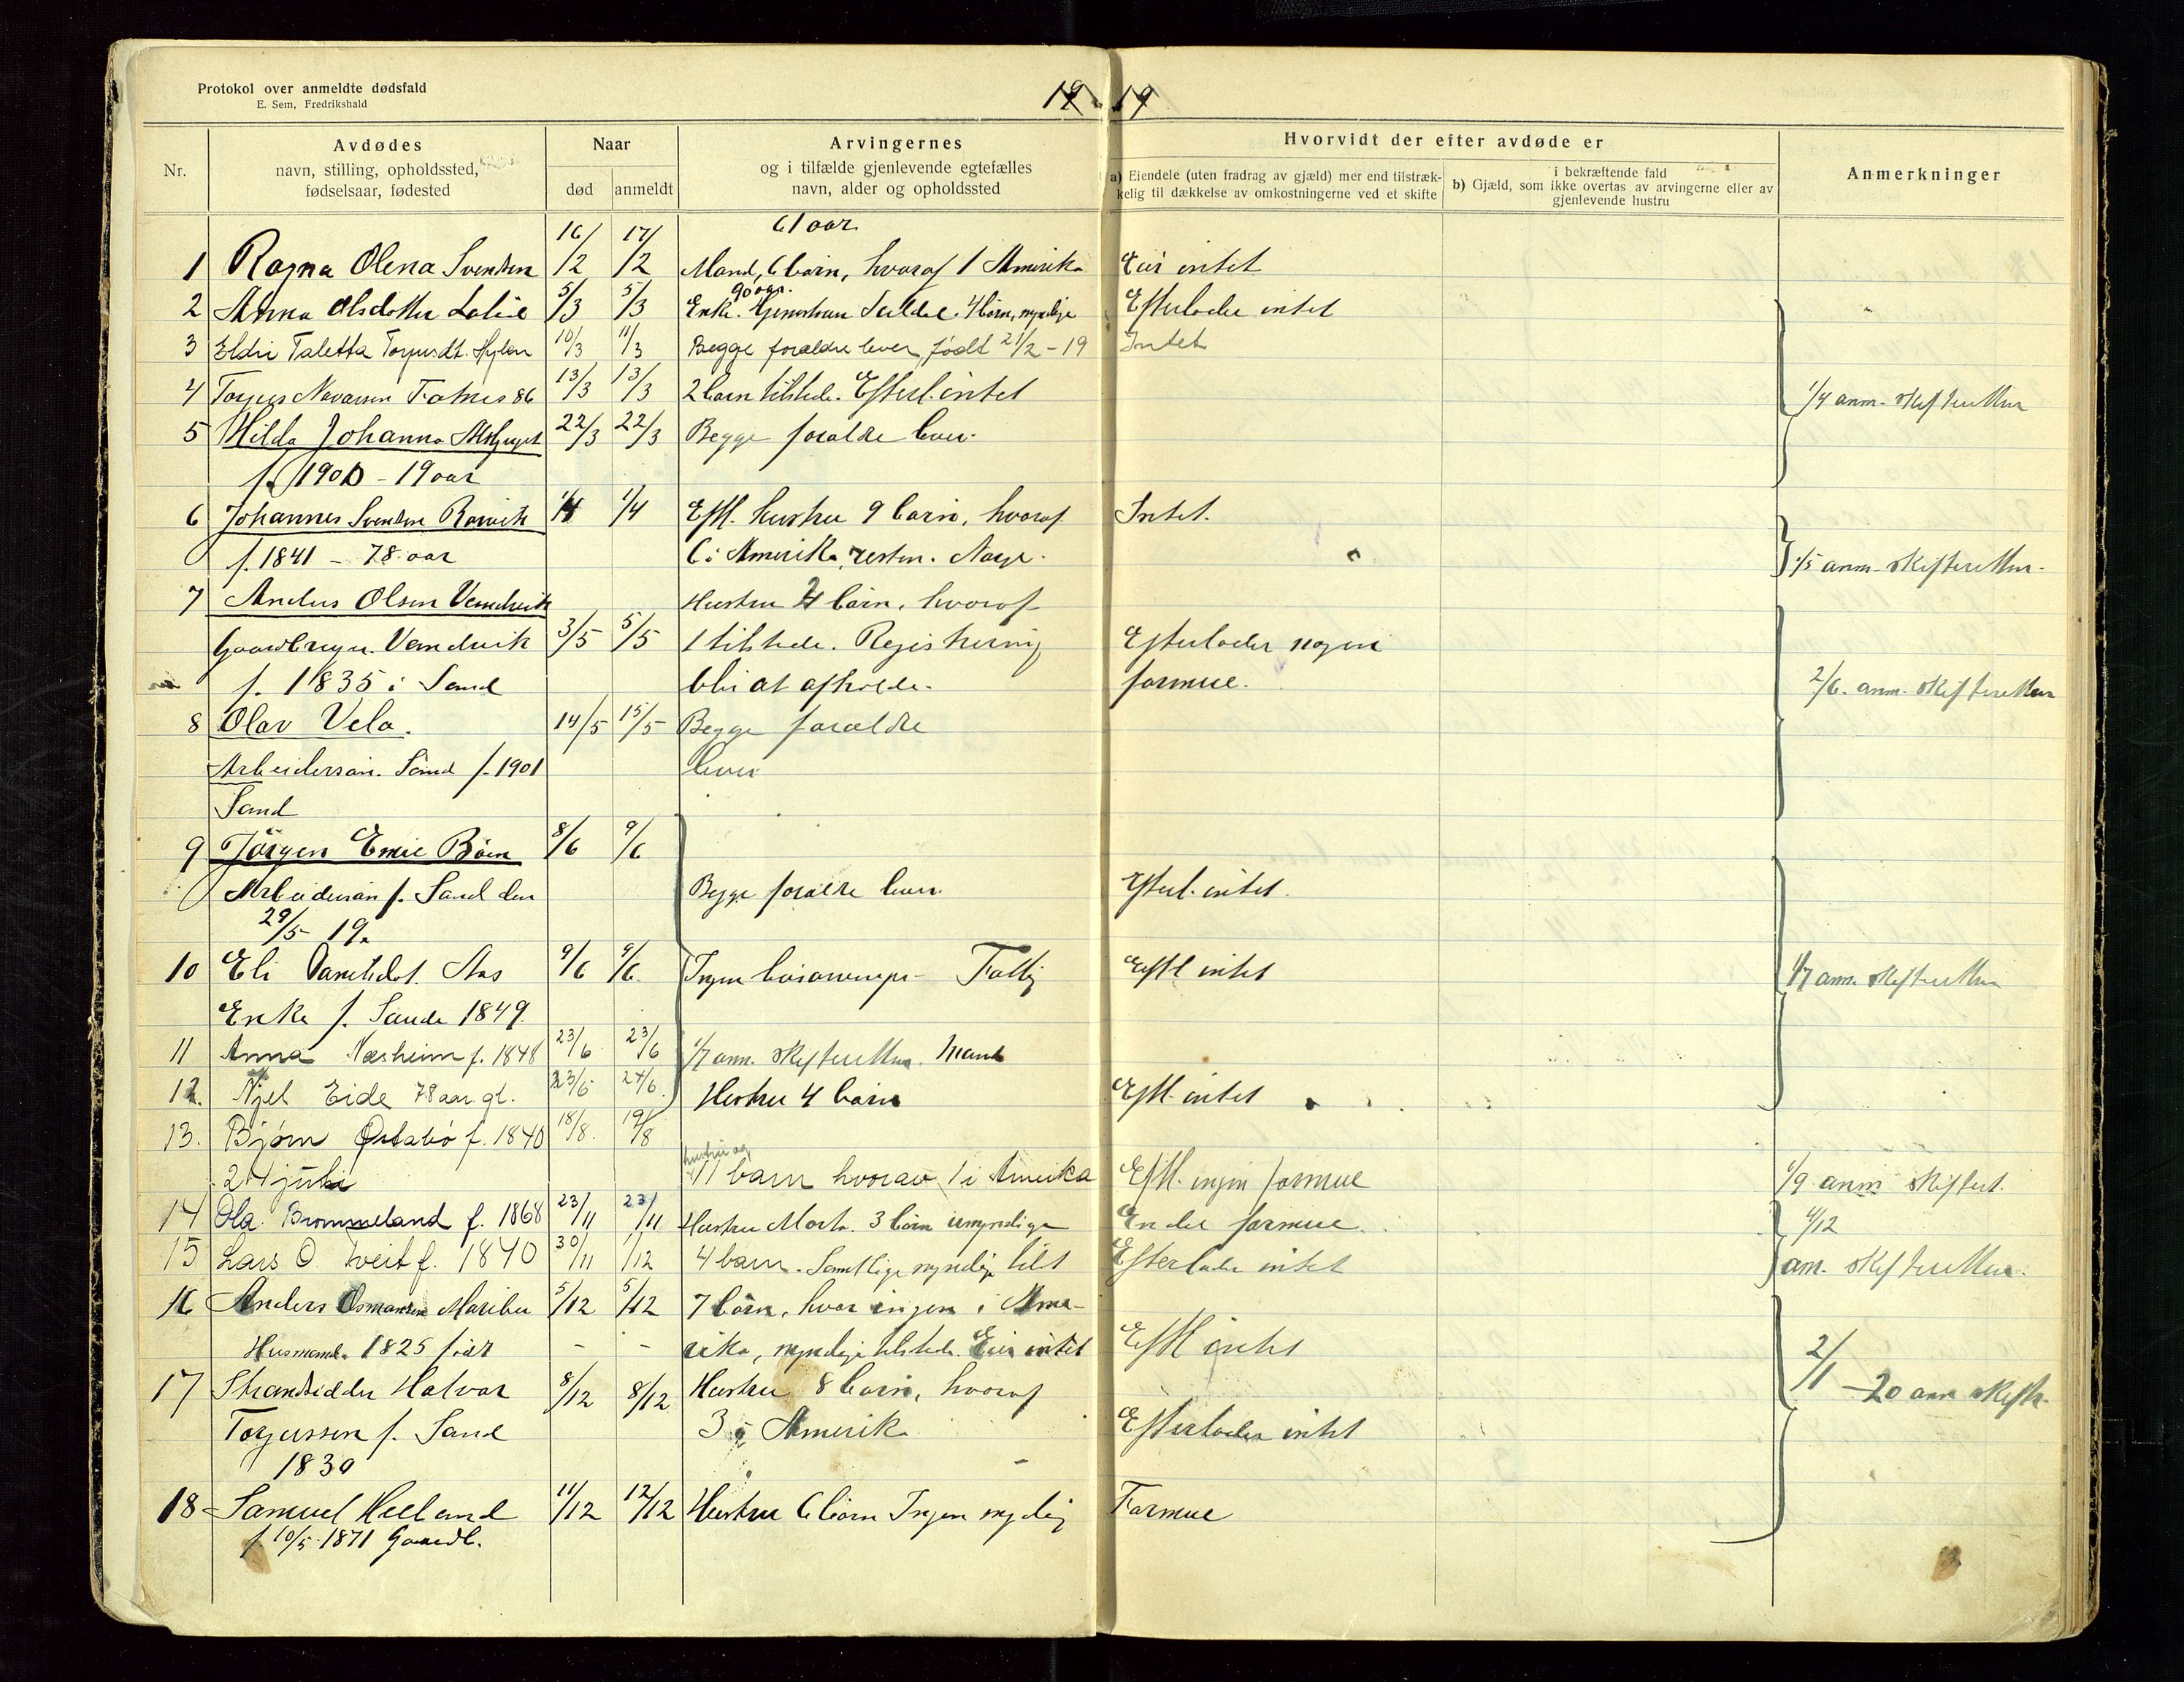 Protokol over anmeldte dødsfald
E. Sem, Fredrikshald
19 19
Nr.
Avdødes
navn, stilling, opholdssted,
fødselsaar, fødested
Naar
død anmeldt
Arvingernes
og i tilfælde gjenlevende egtefælles
navn, alder og opholdssted
Hvorvidt der efter avdøde er
a) Eiendele (uten fradrag av gjæld) mer end tilstræk-
kelig til dækkelse av omkostningerne ved et skifte
i bekræftende fald
b) Gjæld, som ikke overtas av arvingerne eller av
gjenlevende hustru
Anmerkninger
61 aar
1 Ragna Olena Svendsen 16/2 17/2 Mand, 6 børn, hvoraf 1 Amerika Eier intet
90 aar.
2 Anna Olsdatter 5/3 5/3 Enke. 4 børn, myndige Efterlader intet
3 Eldri Taletta Torjusdt. Hylen 10/3 11/3 Begge forældre lever, født 21/2 - 19 Intet
4 Torjus 86 13/3 13/3 2 barn tilstede. Efterl. intet 1/4 anm. skifteretten
5 Hilda Johanna 22/3 22/3 Begge forældre lever.
f. 1900 - 19 aar
6 Johannes Svendsen 1/4 1/4 Eftl. hustru 9 børn, hvoraf Intet.
f. 1841 - 78 aar 6 i Amerika, resten i Norge. 1/5 anm. skifteretten.
7 Andres Olsen Vandvik Hustru 4 børn, hvoraf
Gaardbruger. Vandvik 3/5 5/5 1 tilstede. Registrering Efterlader nogen
f. 1835 i Sand blir at afholde. formue. 2/6. anm. skifteretten
8 Olav Vela. 14/5 15/5 Begge forældre
Arbeidersøn. Sand f. 1901 lever
Sand
9 Jørgen Emil Bøen 8/6 9/6
Arbeidersøn f. Sand den Begge forældre lever. Efterl. intet.
29/5 19.
10 Eli Aas 9/6 9/6. Ingen Fattig Eftl intet 1/7 anm. skifteretten
Enke f. Sauda 1849.
11 Anna Næsheim f. 1848 23/6 23/6 1/7 anm. skifteretten. Mand
12. Njel Eide 78 aar gl. 23/6 24/6. Hustru 4 børn Eftl. intet
13. Bjørn Østabø f. 1840 18/8. 19/8
hustru og
24 juli 11 barn hvorav 1 i Amerika Eftl. ingen formue 1/9 anm skifteret.
14 Ola Brommeland f. 1868 23/11 23/11 Hustru Marta. 3 børn umyndige En del formue. 4/12
15 Lars O. Tveit f. 1840 30/11 1/12 4 barn. Samtlige myndige tilst Efterlader intet an. skifteretten.
16 Anders Osmundsen 5/12 5/12 7 børn, hvor ingen i Ame-
Husmand. 1825 født - - rika, myndige tilstede. Eier intet Eftl intet 2/1 -20 anm skiftr.
17 Strandsidder Halvor 8/12 8/12 Hustru 8 børn, hvoraf
Torjussen f. Sand 3 i Amerika Efterlader intet
1830
18 Samuel Helland 11/12 12/12 Hustru 6 børn Ingen myndig Formue
f. 10/5 1871 Gaardb.